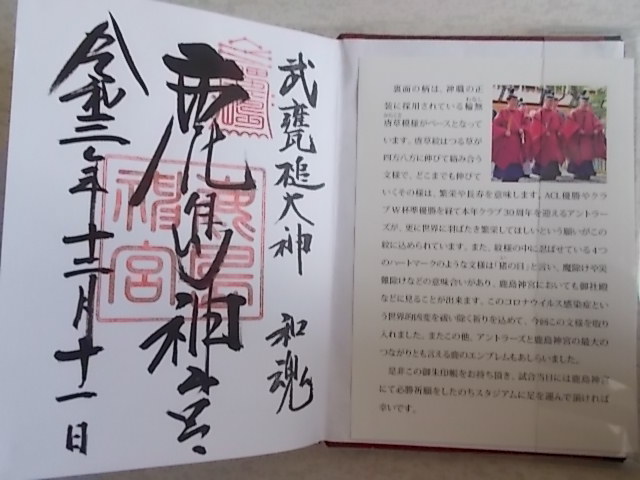 武甕槌大神　和魂
鹿島神宮
鹿島神宮
令和三年十二月十一日
裏面の柄は、神職の正
装に採用されている輪無
わなし
唐草模様がベースとなって
からくさ
います。唐草紋はつる草が
四方八方に伸びて絡み合う
文様で、どこまでも伸びて
いくその様は、繁栄や長寿を意味します。ACL優勝やクラ
ブW杯準優勝を経て本年クラブ30周年を迎えるアントラー
ズが、更に世界に羽ばたき繁栄してほしいという願いがこの
紋に込められています。また、紋様の中に忍ばせている4つ
のハートマークのような文様は「猪の目」と言い、魔除けや災
難除けなどの意味合いがあり、鹿島神宮においても御社殿
などに見ることが出来ます。このコロナウイルス感染症とい
う世界的病変を祓い除く祈りを込めて、今回この文様を取り
入れました。またこの他、アントラーズと鹿島神宮の最大の
つながりとも言える鹿のエンブレムもあしらいました。
是非この御朱印帳をお持ち頂き、試合当日には鹿島神宮
にて必勝祈願をしたのちスタジアムに足を運んで頂ければ
幸いです。